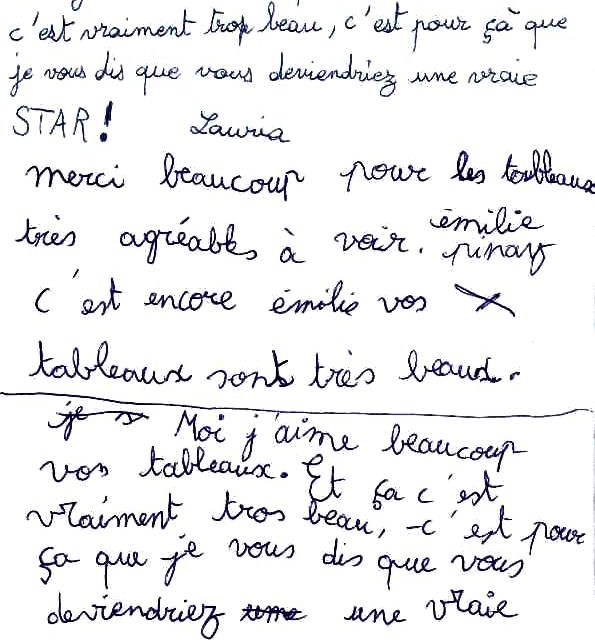 c'est vraiment trop beau, c'est pour ça que
je vous dis que vous deviendriez une vraie
STAR! Lauria
merci beaucoup pour les toubleaux
très agréables à voir. émilie
pinay
c'est encore émilie vos
tableaux sont très beaux.
je s Moi j'aime beaucoup
vos tableaux. Et ça c'est
vraiment tros beau, c'est pour
ça que je vous dis que vous
deviendriez une une vraie